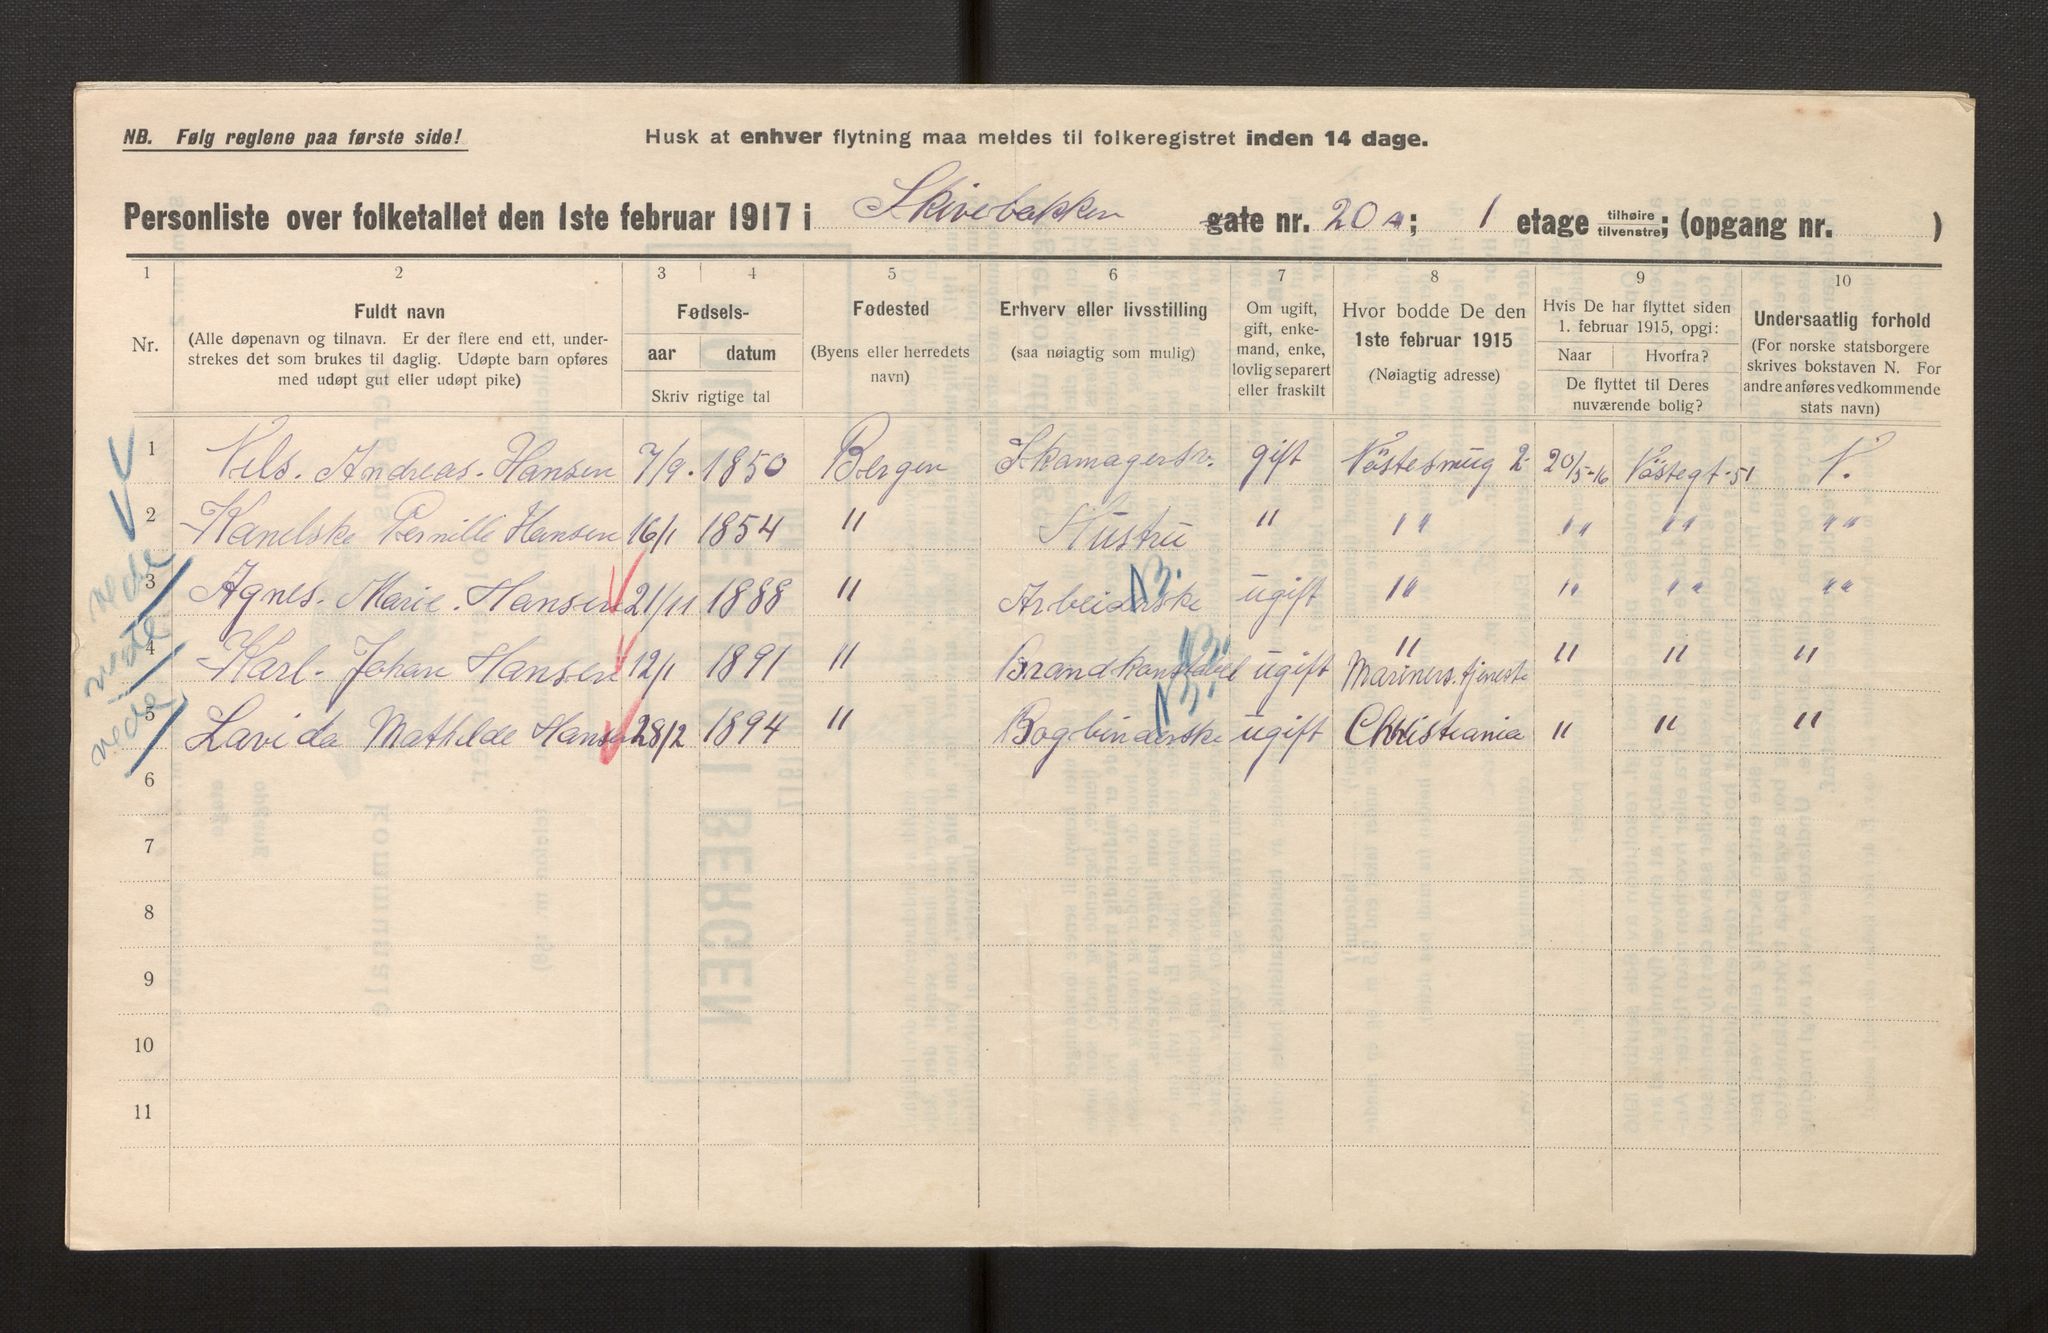 NB. Følg reglene paa første side! Husk at enhver flytning maa meldes til folkeregistret inden 14 dage.
Personliste over folketallet den 1ste februar 1917 i Skivebakken gate nr. 20 a; 1 etage tilhøire tilvenstre; (opgang nr. )
1 2 3 4 5 6 7 8 9 10
Nr.
Fuldt navn
(Alle døpenavn og tilnavn. Er der flere end ett, under-
strekes det som brukes til daglig. Udøpte barn opføres
med udøpt gut eller udøpt pike)
Fødsels-
aar datum
Skriv rigtige tal
Fødested
(Byens eller herredets
navn)
Erhverv eller livsstilling
(saa nøiagtig som mulig)
Om ugift,
gift, enke-
mand, enke,
lovlig separert
eller fraskilt
Hvor bodde De den
1ste februar 1915
(Nøiagtig adresse)
Hvis De har flyttet siden
1. februar 1915, opgi:
Naar Hvorfra?
De flyttet til Deres
nuværende bolig?
Undersaatlig forhold
(For norske statsborgere
skrives bokstaven N. For
andre anføres vedkommende
stats navn)
1 Nels. Andreas. Hansen 7/9. 1850 Bergen Skamagersv. gift Nöstesmug 2 20/5-16 Nöstegt-51 N.
2 Pernille Hansen 16/1 1854 " Hustru " " " " "
rede 3 Agnes. Marie. Hansen 21/11 1888 " Arbeiderske ugift " " " "
rede 4 Karl. Johan Hansen 12/1 1891 " Brandkonstabel ugift " Mariners. tjeneste " " "
rede 5 Lavida Mathilde Hansen 28/2 1894 " Bogbinderske ugift Christiania " " "
6
7
8
9
10
11